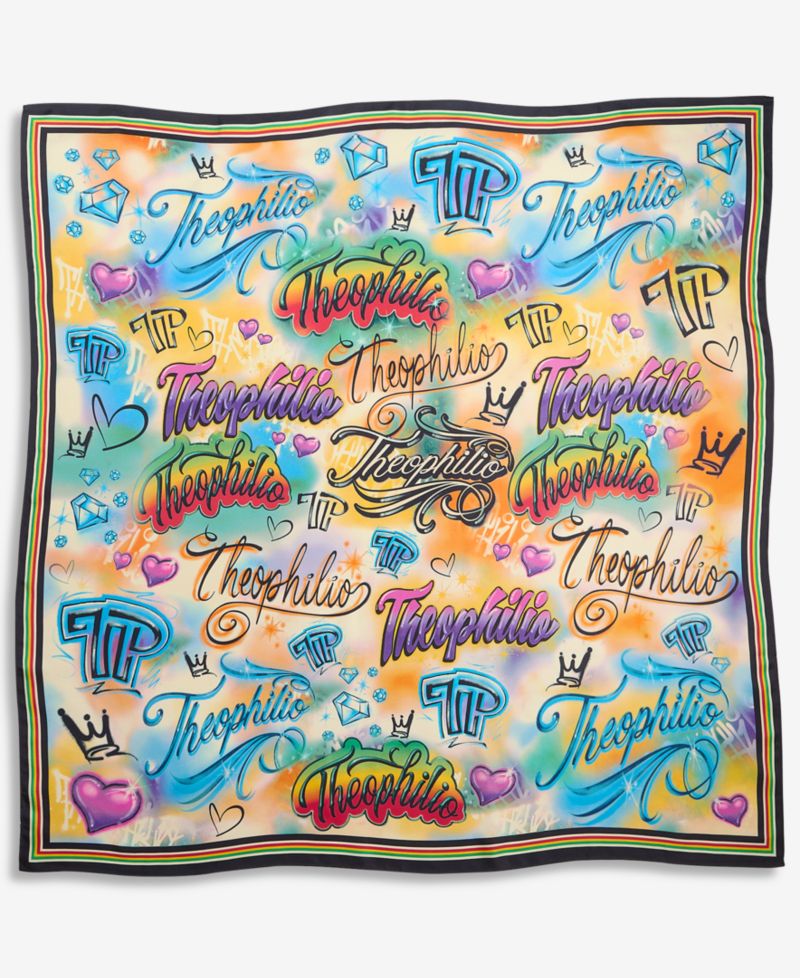 Theophilio
TP
Theophilio
Theophilio
TP
TP
TP
TP
Theophilio
Theophilio
Theophilio
Theophilio
Theophilio
Theophilio
TP
TP
Theophilio
TP
Theophilio
Theophilio
TP
TP
TP
Theophilio
TP
Theophilio
Theophilio